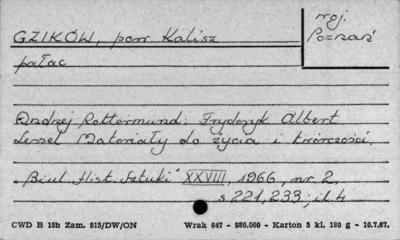 GZIKÓW, pow. Kalisz
woj.
Poznań
pałac
Andrzej Rottermund: Fryderyk Albert
Lessel Materiały do życia i twórczości.
„Biul. Hist. Sztuki" XXVIII, 1966, nr 2.
s. 221, 233; il. 4
CWD B 15b Zam. 915/DW/ON Wrak 647 - 980.000 - Karton 5 kl. 180 g - 10.7.67.